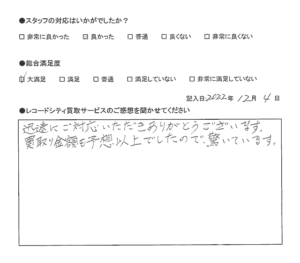 ●スタッフの対応はいかがでしたか？
□ 非常に良かった □ 良かった □ 普通 □ 良くない □ 非常に良くない
●総合満足度
☑ 大満足 □ 満足 □ 普通 □ 満足していない □ 非常に満足していない
記入日 2022 年 12 月 4 日
●レコードシティ買取サービスのご感想を聞かせてください
迅速にご対応いただきありがとうございます。
買取り金額も予想以上でしたので、驚いています。